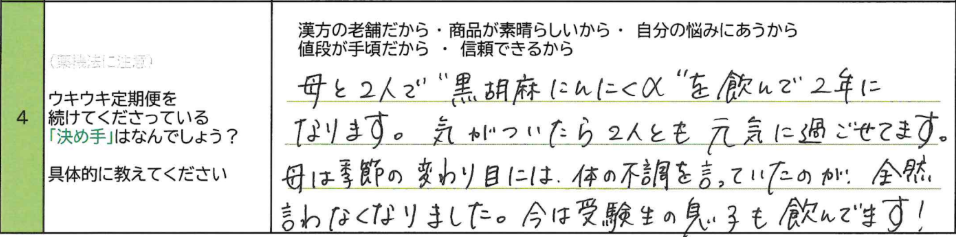 漢方の老舗だから・商品が素晴らしいから・ 自分の悩みにあうから
値段が手頃だから ・ 信頼できるから
(薬機法に注意)
4
ウキウキ定期便を
続けてくださっている
「決め手」はなんでしょう？
具体的に教えてください
母と2人で“黒胡麻にんにくα“を飲んで2年に
なります。気がついたら2人とも元気に過ごせてます。
母は季節の変わり目には、体の不調を言っていたのが、全然
言わなくなりました。今は受験生の息子も飲んでます！